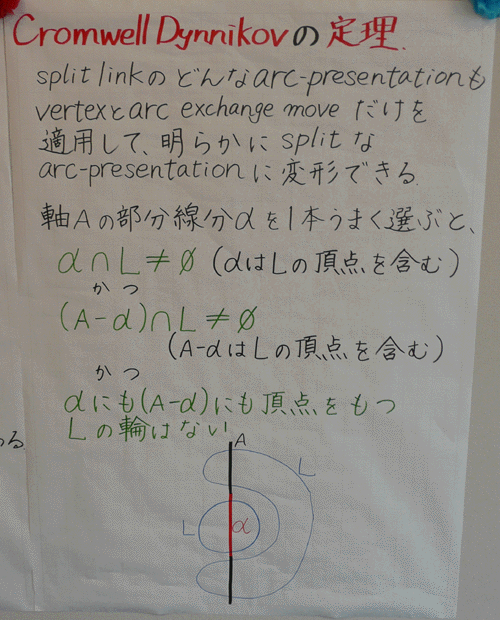 Cromwell Dynnikovの定理.
split linkのどんなarc-presentationも
vertexとarc exchange moveだけを
適用して、明らかにsplitな
arc-presentationに変形できる.
軸Aの部分線分αを1本うまく選ぶと、
α∩L≠∅ (αはLの頂点を含む)
かつ
(A-α)∩L≠∅
(A-αはLの頂点を含む)
かつ
αにも(A-α)にも頂点をもつ
Lの輪はない
る
A
L
L
α